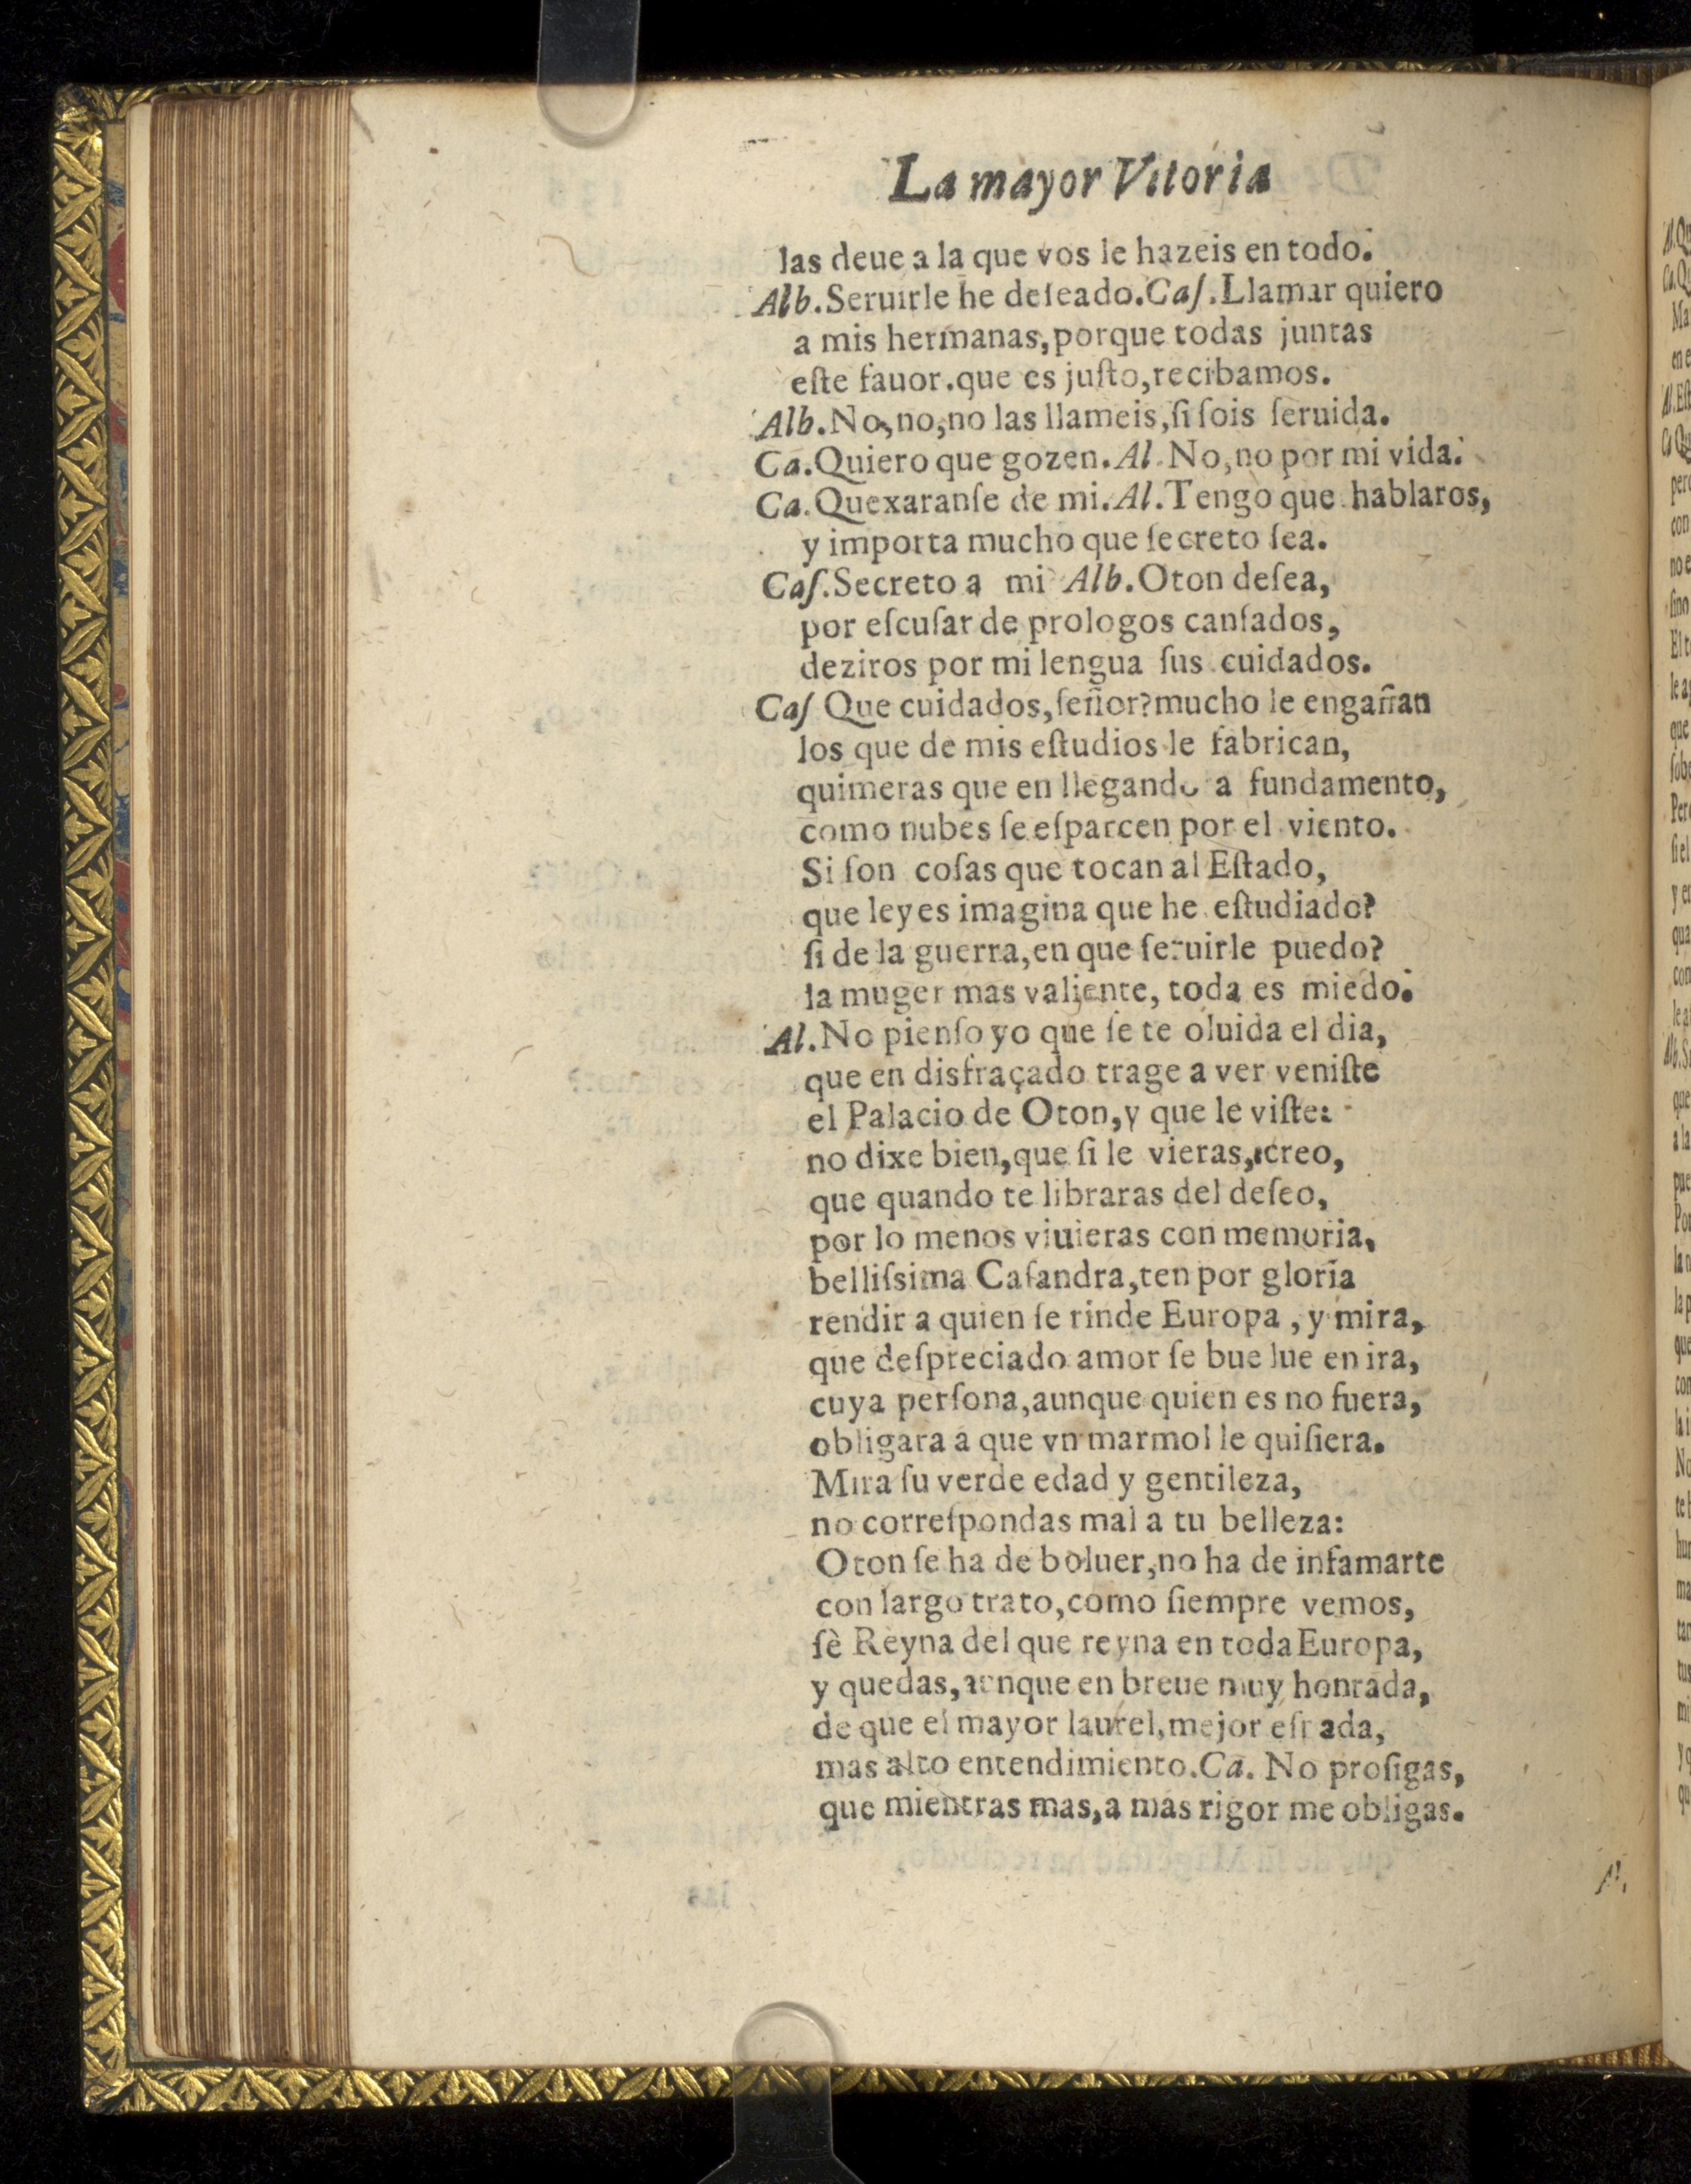 La mayor Vitoria
las deue a la que vos le hazeis en todo.
Alb.Seruirle he deſeado.Caſ.Llamar quiero
a mis hermanas,porque todas juntas
eſte fauor.que es juſto,recibamos.
Alb.No,no,no las llameis,ſi ſois ſeruida.
Ca.Quiero que gozen.Al.No,no por mi vida.
Ca.Quexaranſe de mi.Al.Tengo que hablaros,
y importa mucho que ſecreto ſea.
Caſ.Secreto a mi Alb.Oton deſea,
por eſcuſar de prologos canſados,
deziros por mi lengua ſus cuidados.
Caſ Que cuidados,ſeñor?mucho le engañan
los que de mis eſtudios le fabrican,
quimeras que en llegando a fundamento,
como nubes ſe eſparcen por el viento.
Si ſon coſas que tocan al Eſtado,
que leyes imagina que he eſtudiado?
ſi de la guerra,en que ſeruirle puedo?
la muger mas valiente, toda es miedo.
Al.No pienſo yo que ſe te oluida el dia,
que en disfraçado trage a ver veniſte
el Palacio de Oton,y que le viſte:
no dixe bien,que ſi le vieras,creo,
que quando te libraras del deſeo,
por lo menos viuieras con memoria,
belliſsima Caſandra,ten por gloria
rendir a quien ſe rinde Europa , y mira,
que deſpreciado amor ſe buelue en ira,
cuya perſona,aunque quien es no fuera,
obligara a que vn marmol le quiſiera.
Mira ſu verde edad y gentileza,
no correſpondas mal a tu belleza:
Oton ſe ha de boluer,no ha de infamarte
con largo trato,como ſiempre vemos,
ſè Reyna del que reyna en toda Europa,
y quedas,aunque en breue muy honrada,
de que el mayor laurel,mejor eſpada,
mas alto entendimiento.Ca. No proſigas,
que mientras mas,a mas rigor me obligas.
Al.